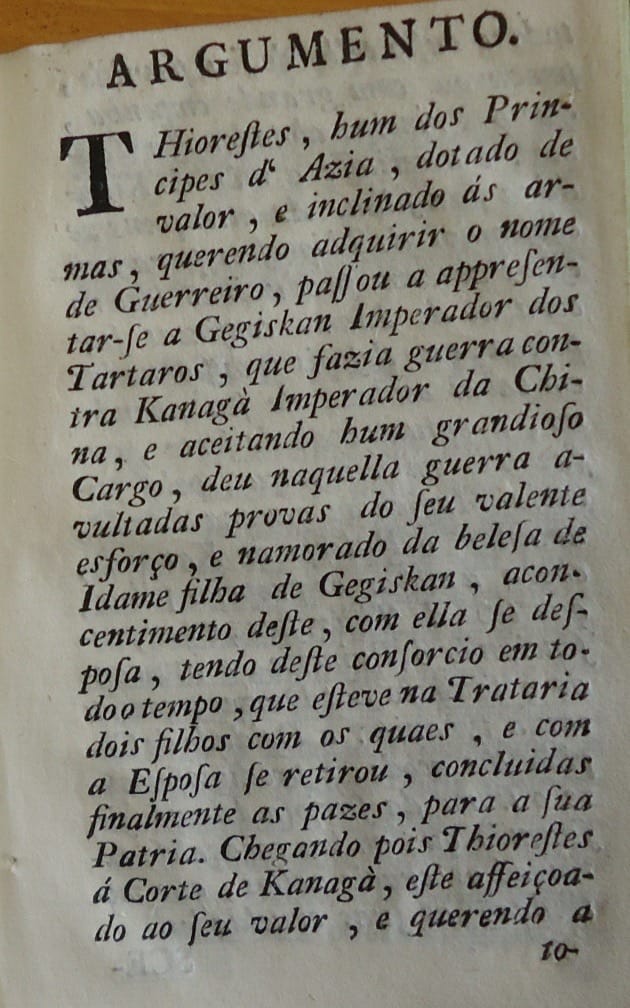 ARGUMENTO.
THioreſtes, hum dos Prin-
cipes d' Azia, dotado de
valor, e inclinado ás ar-
mas, querendo adquirir o nome
de Guerreiro, paſſou a appreſen-
tar-ſe a Gegiskan Imperador dos
Tartaros, que fazia guerra con-
tra Kanagà Imperador da Chi-
na, e aceitando hum grandioſo
Cargo, deu naquella guerra a-
vultadas provas do ſeu valente
esforço, e namorado da beleſa de
Idame filha de Gegiskan, acon-
centimento deſte, com ella ſe deſ-
poſa, tendo deſte conſorcio em to-
do o tempo, que eſteve na Trataria
dois filhos com os quaes, e com
a Eſpoſa ſe retirou, concluidas
finalmente as pazes, para a ſua
Patria. Chegando pois Thioreſtes
á Corte de Kanagà, eſte affeiçoa-
do ao ſeu valor, e querendo a
to-